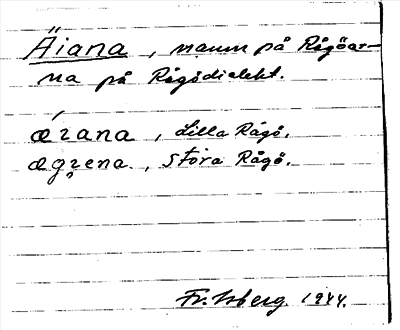 Äiana, namn på Rågöar-
na på Rågödialekt.
ærana, Lilla Rågö.
ægrena, Stora Rågö.
Fr. Isberg 1944.